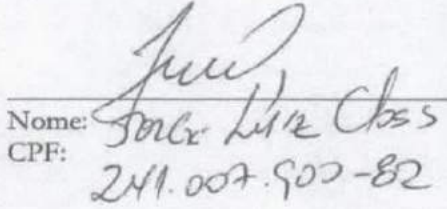 Nome: Jorge Luiz Closs
CPF:
241.007.900-82